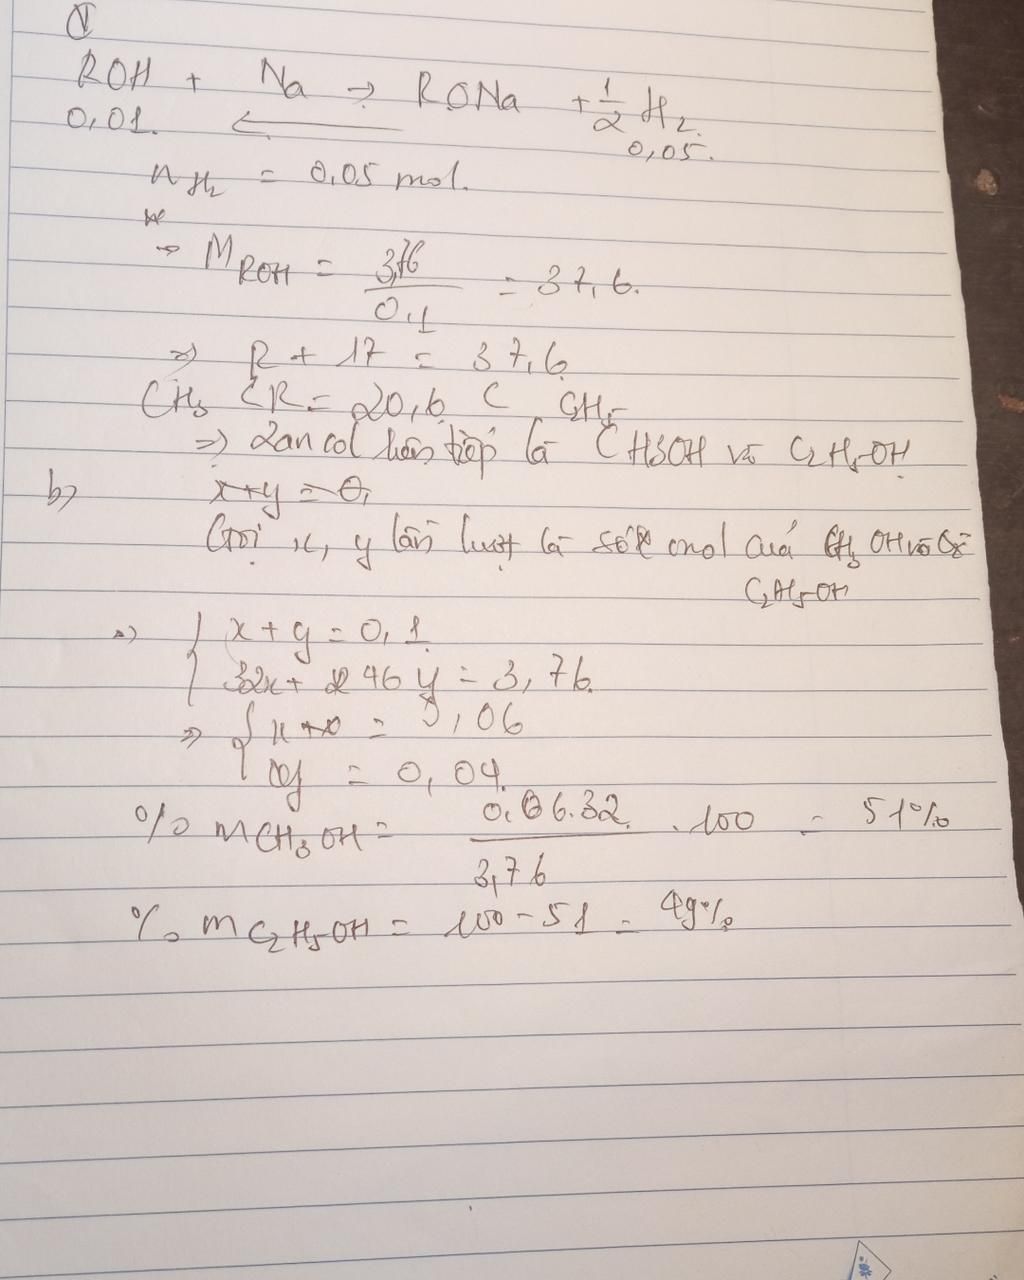 ROH + Na → RONa + 1/2 H2
0,01. ← 0,05.
n H2 = 0,05 mol.
→ M ROH = 3,76 / 0,1 = 37,6.
⇒ R + 17 = 37,6
CH3 < R = 20,6 < C2H5
⇒ 2 ancol liên tiếp là CH3OH và C2H5OH
b) x+y = 0,
Gọi x, y lần lượt là số mol của CH3OH và
C2H5OH
⇒) { x + y = 0,1
32x + 46 y = 3,76.
⇒ { x = 0,06
y = 0,04.
% m CH3OH = 0,06.32 / 3,76 . 100 = 51%
% m C2H5OH = 100 - 51 = 49%